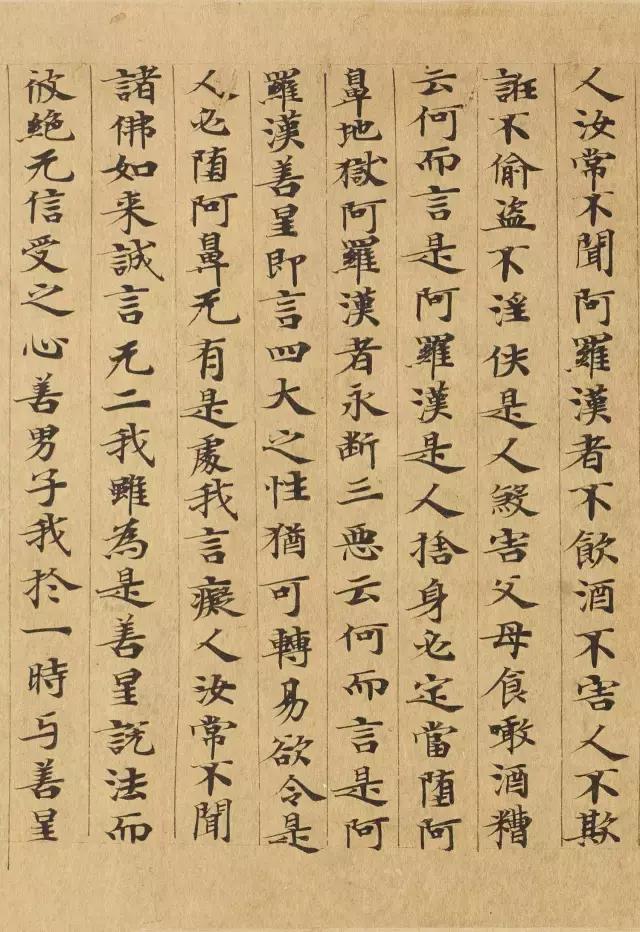 人汝常不聞阿羅漢者不飲酒不害人不欺
誑不偷盜不淫佚是人殺害父母食噉酒糟
云何而言是阿羅漢是人捨身必定當堕阿
鼻地獄阿羅漢者永断三惡云何而言是阿
羅漢善星即言四大之性猶可轉易欲令是
人必堕阿鼻无有是處我言癡人汝常不聞
諸佛如来誠言无二我雖為是善星說法而
彼絕无信受之心善男子我於一時与善星